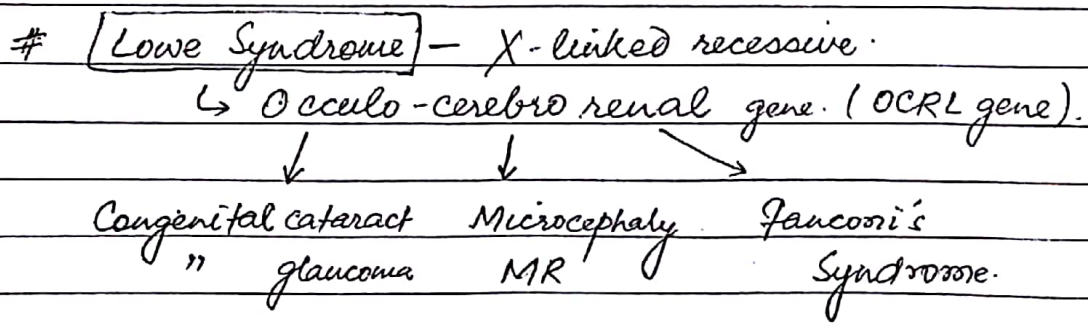 # Lowe Syndrome - X-linked recessive.
↳ Occulo-cerebro renal gene. (OCRL gene).
Congenital cataract Microcephaly Fanconi's
" glaucoma MR Syndrome.